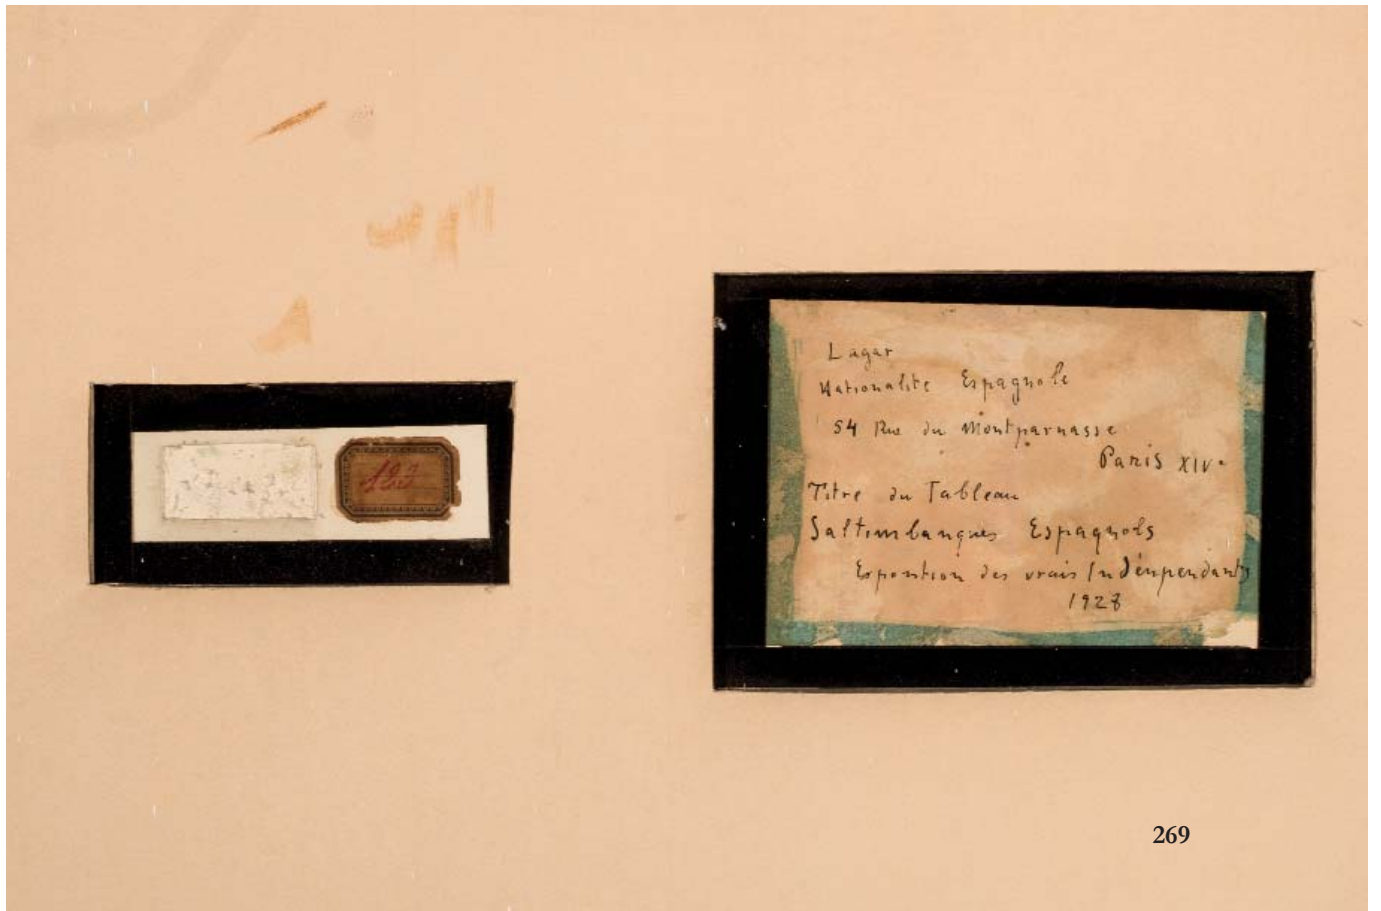 Lagar
Nationalite Espagnole
54 Rue du Montparnasse
Paris XIVe
Titre du Tableau
Saltimbanques Espagnols
Exposition des vrais Indénpendants
1928
269